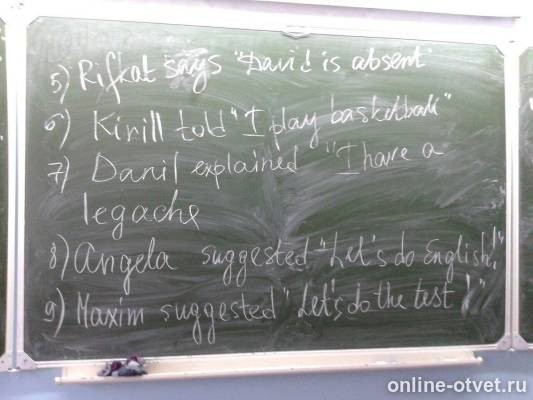 5) Rifkat says "David is absent"
6) Kirill told "I play basketball"
7) Danil explained "I have a
legache
8) Angela suggested "Let's do English!"
9) Maxim suggested "Let's do the test!"
online-otvet.ru